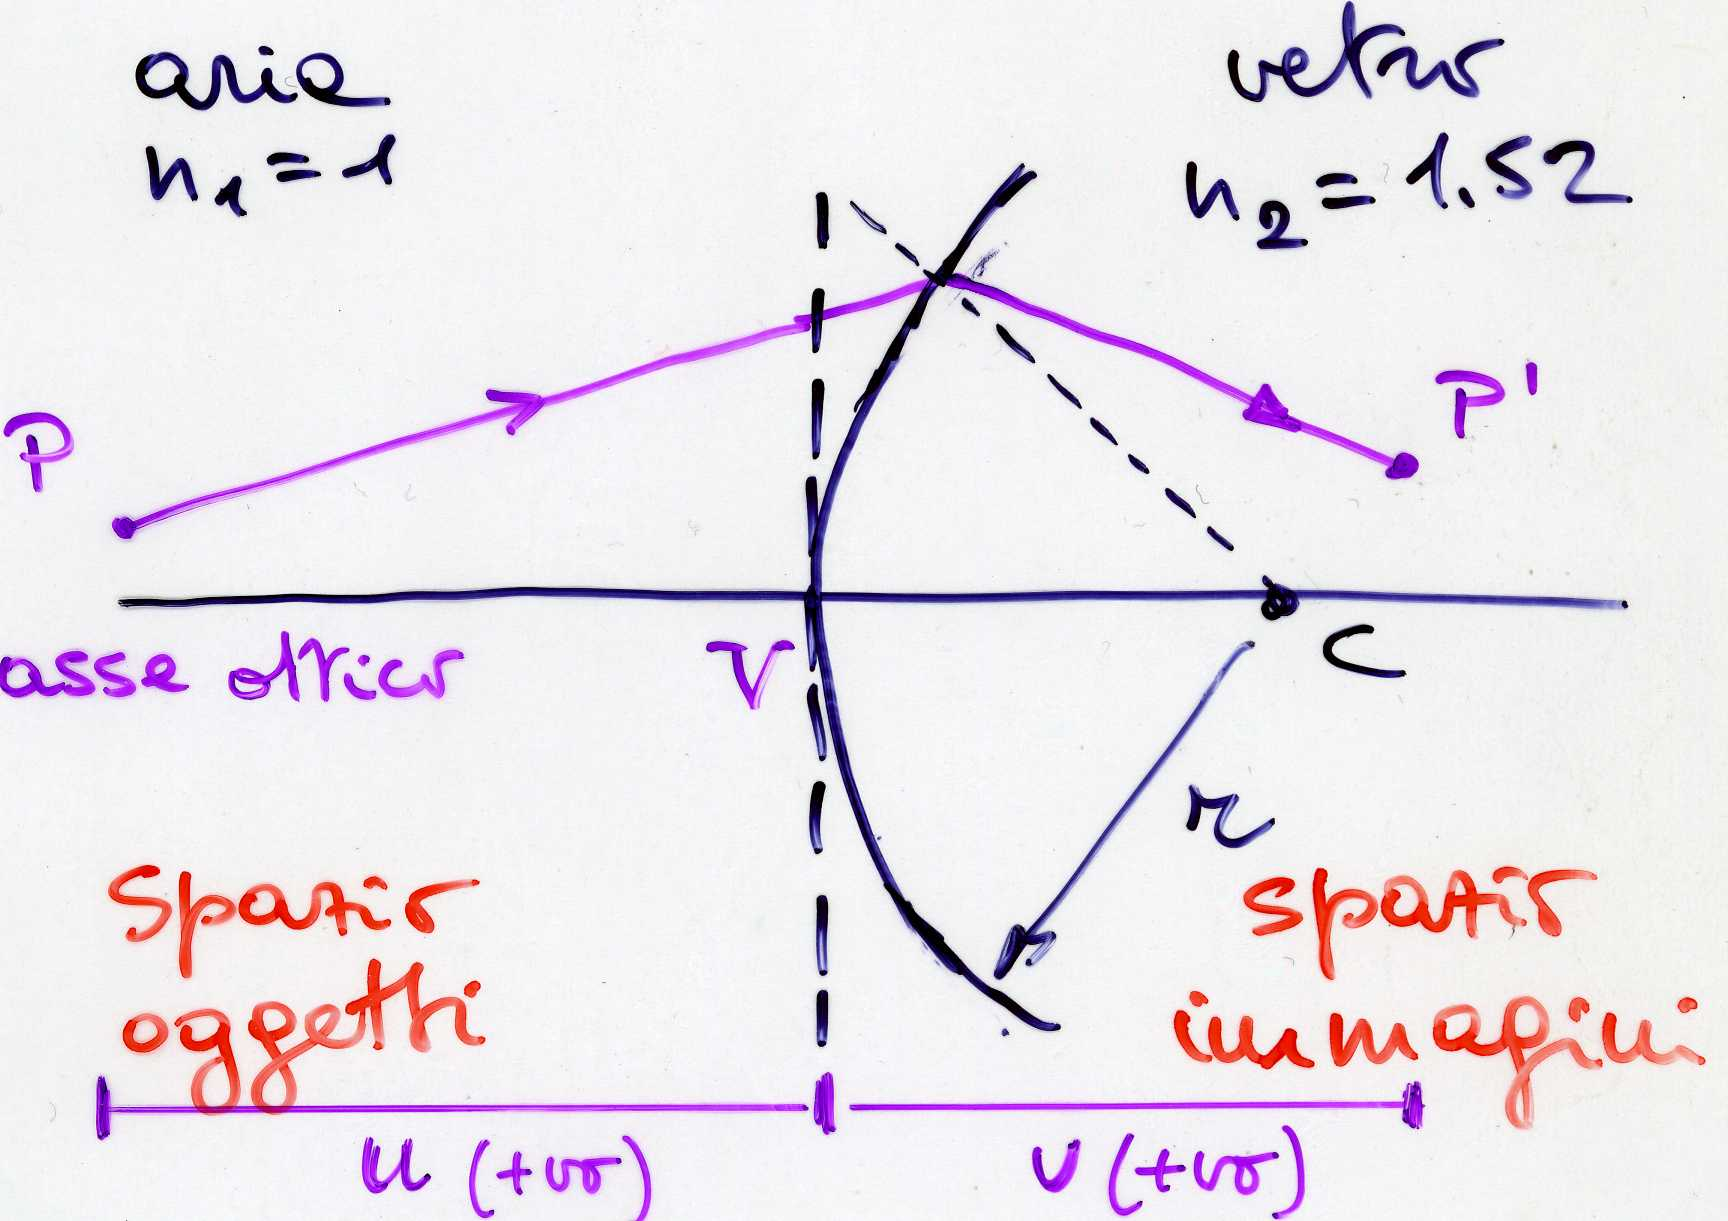 aria
n₁ = 1
vetro
n₂ = 1.52
P
P'
asse ottico
V
C
r
Spazio
oggetti
spazio
immagini
u (+vo)
v (+vo)